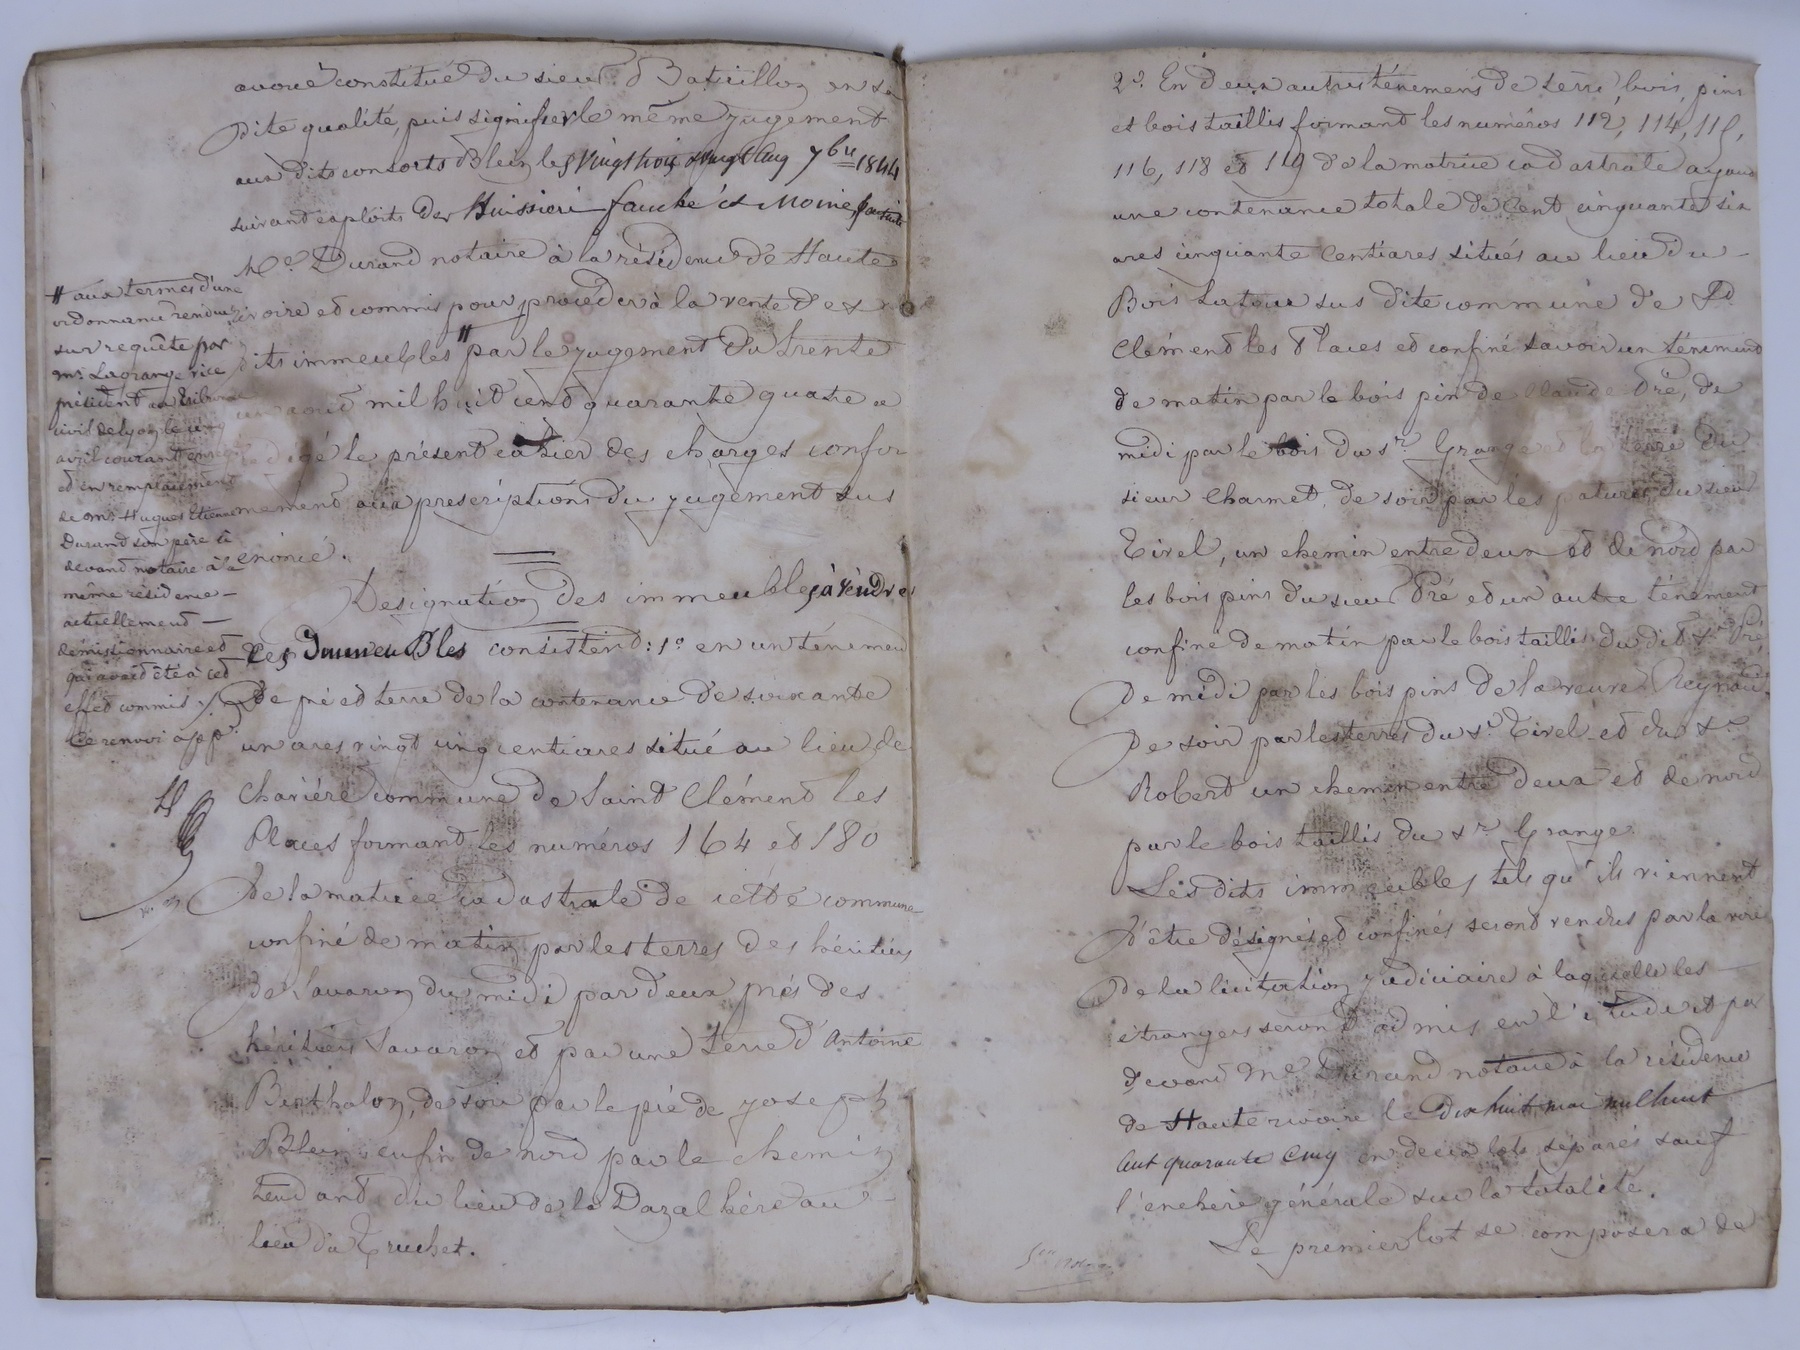 avoué constitué du sieur Bataillon en sa
dite qualité, puis signifier le même jugement
aux dits consorts Blein les vingt trois & vingt cinq 7bre 1844
suivant exploits des Huissiers fauché et Moine,
Me Durand notaire à la résidence de Haute
rivoire et commis pour procéder à la vente des
dits immeubles # par le jugement du trente
un août mil huit cent quarante quatre a
rédigé le présent cahier des charges confor
mement aux prescriptions du jugement sus
énoncé.
# aux termes d'une
ordonnance rendue
sur requête par
mr. Lagrange vice
président au tribunal
civil de Lyon le cinq
avril courant
et en remplacement
de mr. Hugues Etienne
Durand son père ci
devant notaire à la
même résidence
actuellement
démissionnaire et
qui avait été à cet
effet commis ./.
Ce renvoi app.
Designation des immeubles à vendre
Ces Immeubles consistent: 1o en un ténement
de pré et terre de la contenance de soixante
un ares vingt cinq centiares situé au lieu de
Charière commune de Saint Clément les
Places formant les numéros 164 et 180
de la matrice cadastrale de cette commune
confiné de matin par les terres des héritiers
de Savaron du midi par deux prés des
héritiers Savaron et par une terre d'Antoine
Berthalon, de soir par le pré de Joseph
Blein, enfin de nord par le chemin
tendant du lieu de la Dazalhère au
lieu du Truchet.
2o. En deux autres ténemens de terre, bois, pins
et bois taillis formant les numéros 112, 114, 115,
116, 118 et 119 de la matrice cadastrale ayant
une contenance totale de Cent cinquante six
ares cinquante Centiares situés au lieu du
Bois Latour sus dite commune de St.
Clément les Places et confiné savoir un ténement
de matin par le bois pin de Claude Pré, de
midi par le bois du sr. Grange et la terre du
sieur Charmet, de soir par les patures du sieur
Tirel, un chemin entre deux et de nord par
les bois pins du sieur Pré et un autre ténement
confiné de matin par le bois taillis du dit sr. Pré
de midi par les bois pins de la veuve Reynaud
de soir par les terres du sr. Tirel et du sr.
Robert un chemin entre deux et de nord
par le bois taillis du sr. Grange.
Les dits immeubles tels qu'ils viennent
d'être désignés et confinés seront vendus par la voie
de la licitation judiciaire à laquelle les
étrangers seront admis en l'étude et par
devant Me Durand notaire à la résidence
de Hauterivoire le dix huit mai mil huit
cent quarante cinq en deux lots séparés sauf
l'enchère générale sur la totalité.
Le premier lot se composera de